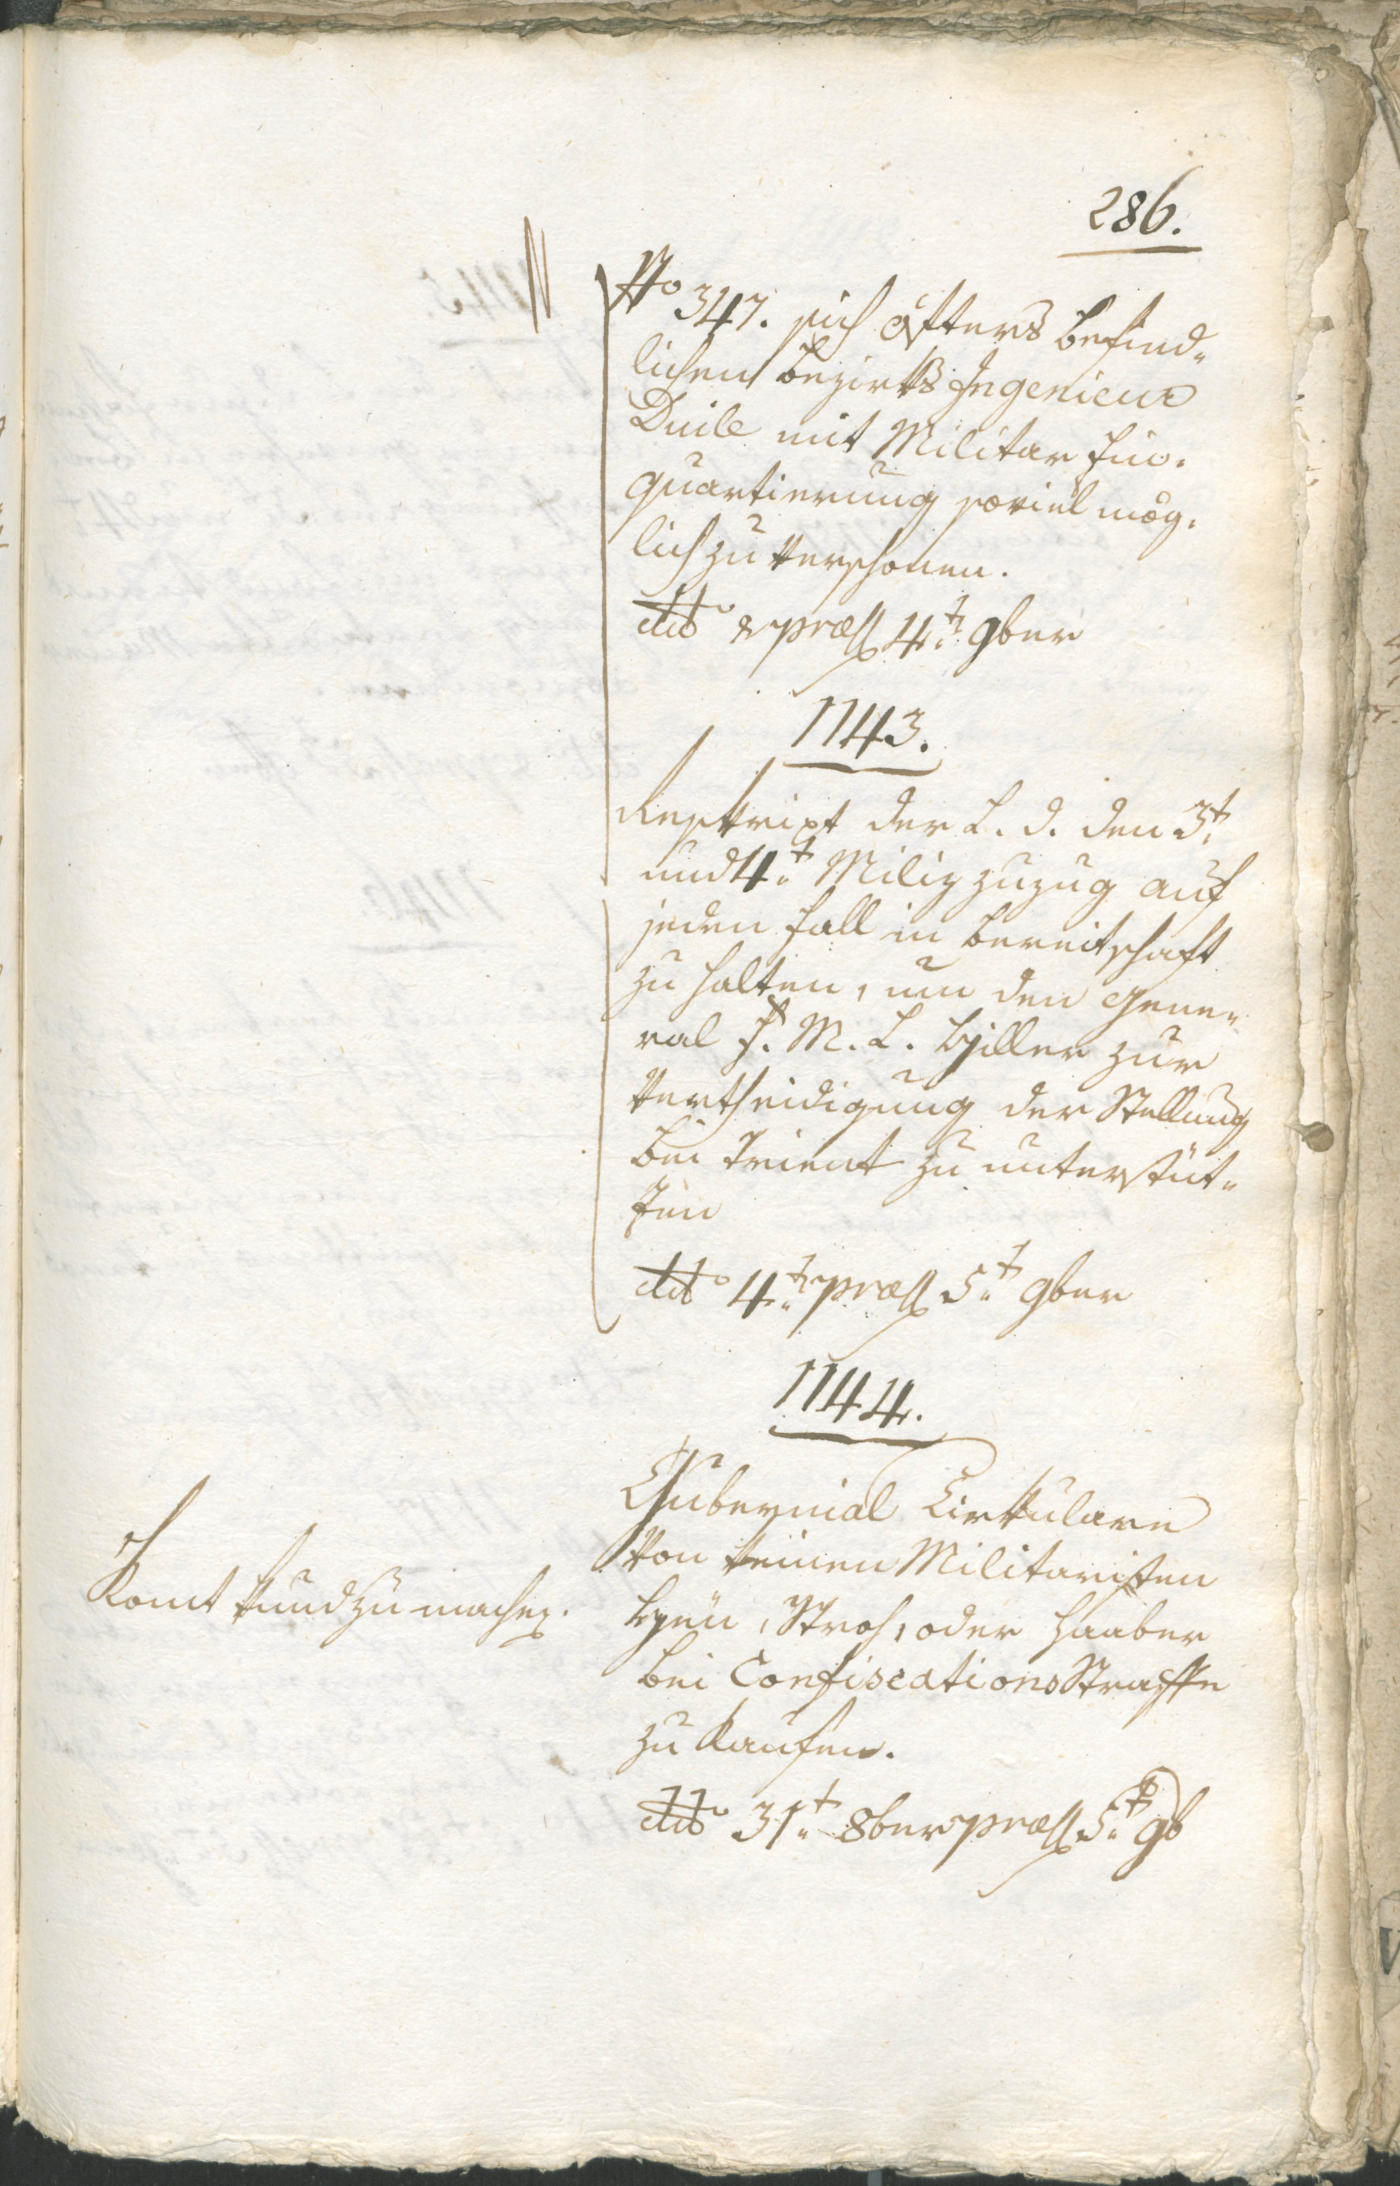 286.
No 347. sich öfters befind-
lichen Bezirks Ingenieur
Duile mit Militar Ein-
quartierung soviel mög-
lich zu verschonen.
ddto & præs 4t. 9ber
1143.
Reskript der L. d. den 3t.
und 4t. Milizzuzug auf
jeden Fall in Bereitschaft
zu halten, um den Gene-
ral F. M. L. Hiller zur
Vertheidigung der Stellung
bei Trient zu unterstüt-
zen
ddto 4t. præs 5t. 9ber
1144.
Gubernial Cirkulare
von keinen Militaristen
Heu, Stroh, oder Haaber
bei Confiscations Straffe
zu kaufen.
ddto 31t. 8ber præs 5t. 9b
Komt kund zu machen.